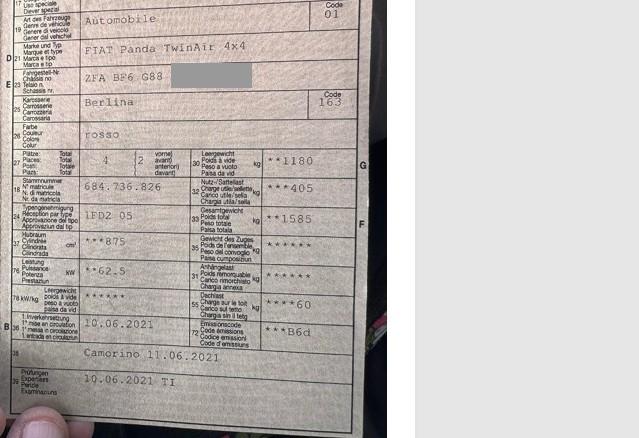 17 Uso speciale
Diever spezial
Art des Fahrzeugs
19 Genre de véhicule
Genere di veicolo
Gener dal vehichel
Automobile
Code
01
Marke und Typ
D 21 Marque et type
Marca e tipo
Marca e tip
FIAT Panda TwinAir 4x4
Fahrgestell-Nr.
E 23 Châssis no
Telaio n.
Schassis nr.
ZFA BF6 G88
Karosserie
25 Carrosserie
Carrozzeria
Carossaria
Berlina
Code
163
Farbe
26 Couleur
Colore
Colur
rosso
Plätze: Total vorne)
27 Places: Total avant)
Posti: Totale anteriori)
Plazs: Total davant)
4 (2
30 Leergewicht
Poids à vide kg
Peso a vuoto
Paisa da vid
**1180 G
Stammnummer
18 N° matricule
N. di matricola
Nr. da matricla
684.736.826
Nutz-/Sattellast
32 Charge utile/sellette kg
Carico utile/sella
Chargia utila/sella
***405
Typengenehmigung
24 Réception par type
Approvazione del tipo
Approvaziun dal tip
1FD2 05
Gesamtgewicht
33 Poids total kg
Peso totale
Paisa totala
**1585 F
Hubraum
37 Cylindrée cm³
Cilindrata
Cilindrada
***875
Gewicht des Zuges
35 Poids de l'ensemble kg
Peso del convoglio
Paisa cumposiziun
******
Leistung
76 Puissance kW
Potenza
Prestaziun
**62.5
Anhängelast
31 Poids remorquable kg
Carico rimorchiato
Chargia annexa
******
Leergewicht
78 kW/kg poids à vide
peso a vuoto
paisa da vid
******
Dachlast
55 Charge sur le toit kg
Carico sul tetto
Chargia sin il tetg
****60
1. Inverkehrsetzung
B 36 1re mise en circulation
1a messa in circolazione
1. entrada en circulaziun
10.06.2021
Emissionscode
72 Code émissions
Codice emissioni
Code d'emissiuns
***B6d
38 Camorino 11.06.2021
Prüfungen
39 Expertises
Perizie
Examinaziuns
10.06.2021 TI